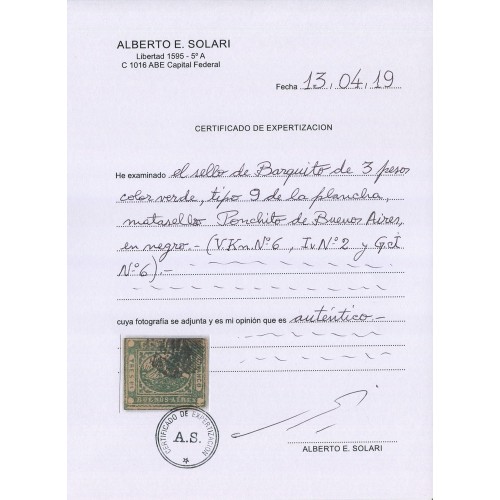 ALBERTO E. SOLARI
Libertad 1595 - 5º A
C 1016 ABE Capital Federal
Fecha 13.04.19
CERTIFICADO DE EXPERTIZACION
He examinado el sello de Barquito de 3 pesos
color verde, tipo 9 de la plancha,
matasello Ponchito de Buenos Aires,
en negro - (V.Kn.Nº6, Iv.Nº2 y G.J.
Nº6).-
cuya fotografía se adjunta y es mi opinión que es auténtico -
BUENOS AIRES
CERTIFICADO DE EXPERTIZACION
A.S.
ALBERTO E. SOLARI